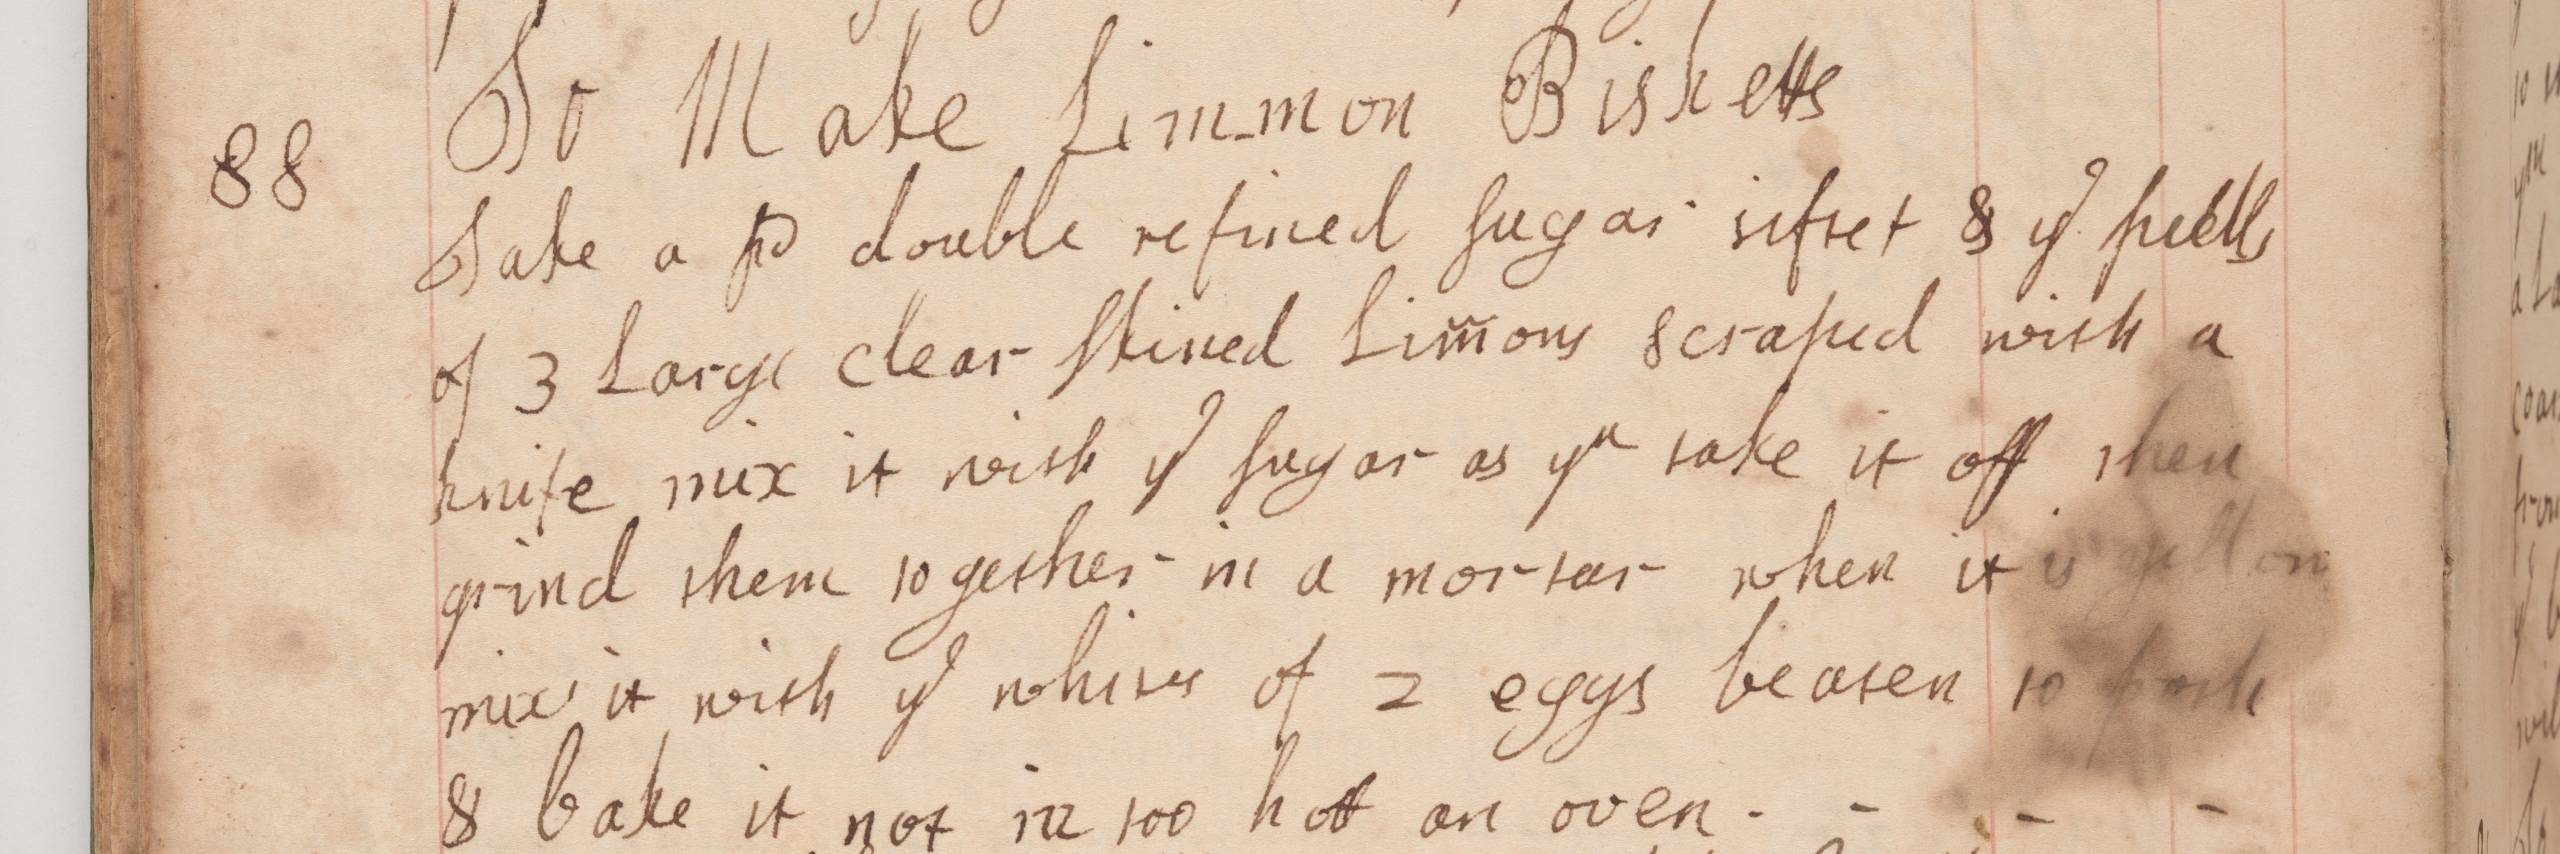 88 To Make Limmon Bisketts
Take a pd double refined sugar siftet & ye peells
of 3 Large clear skined Lim̃ons scraped with a
knife mix it with ye sugar as yu take it off then
grind them together in a mortar when it is yellow
mix it with ye whites of 2 eggs beaten to froth
& bake it not in too hot an oven - - - -